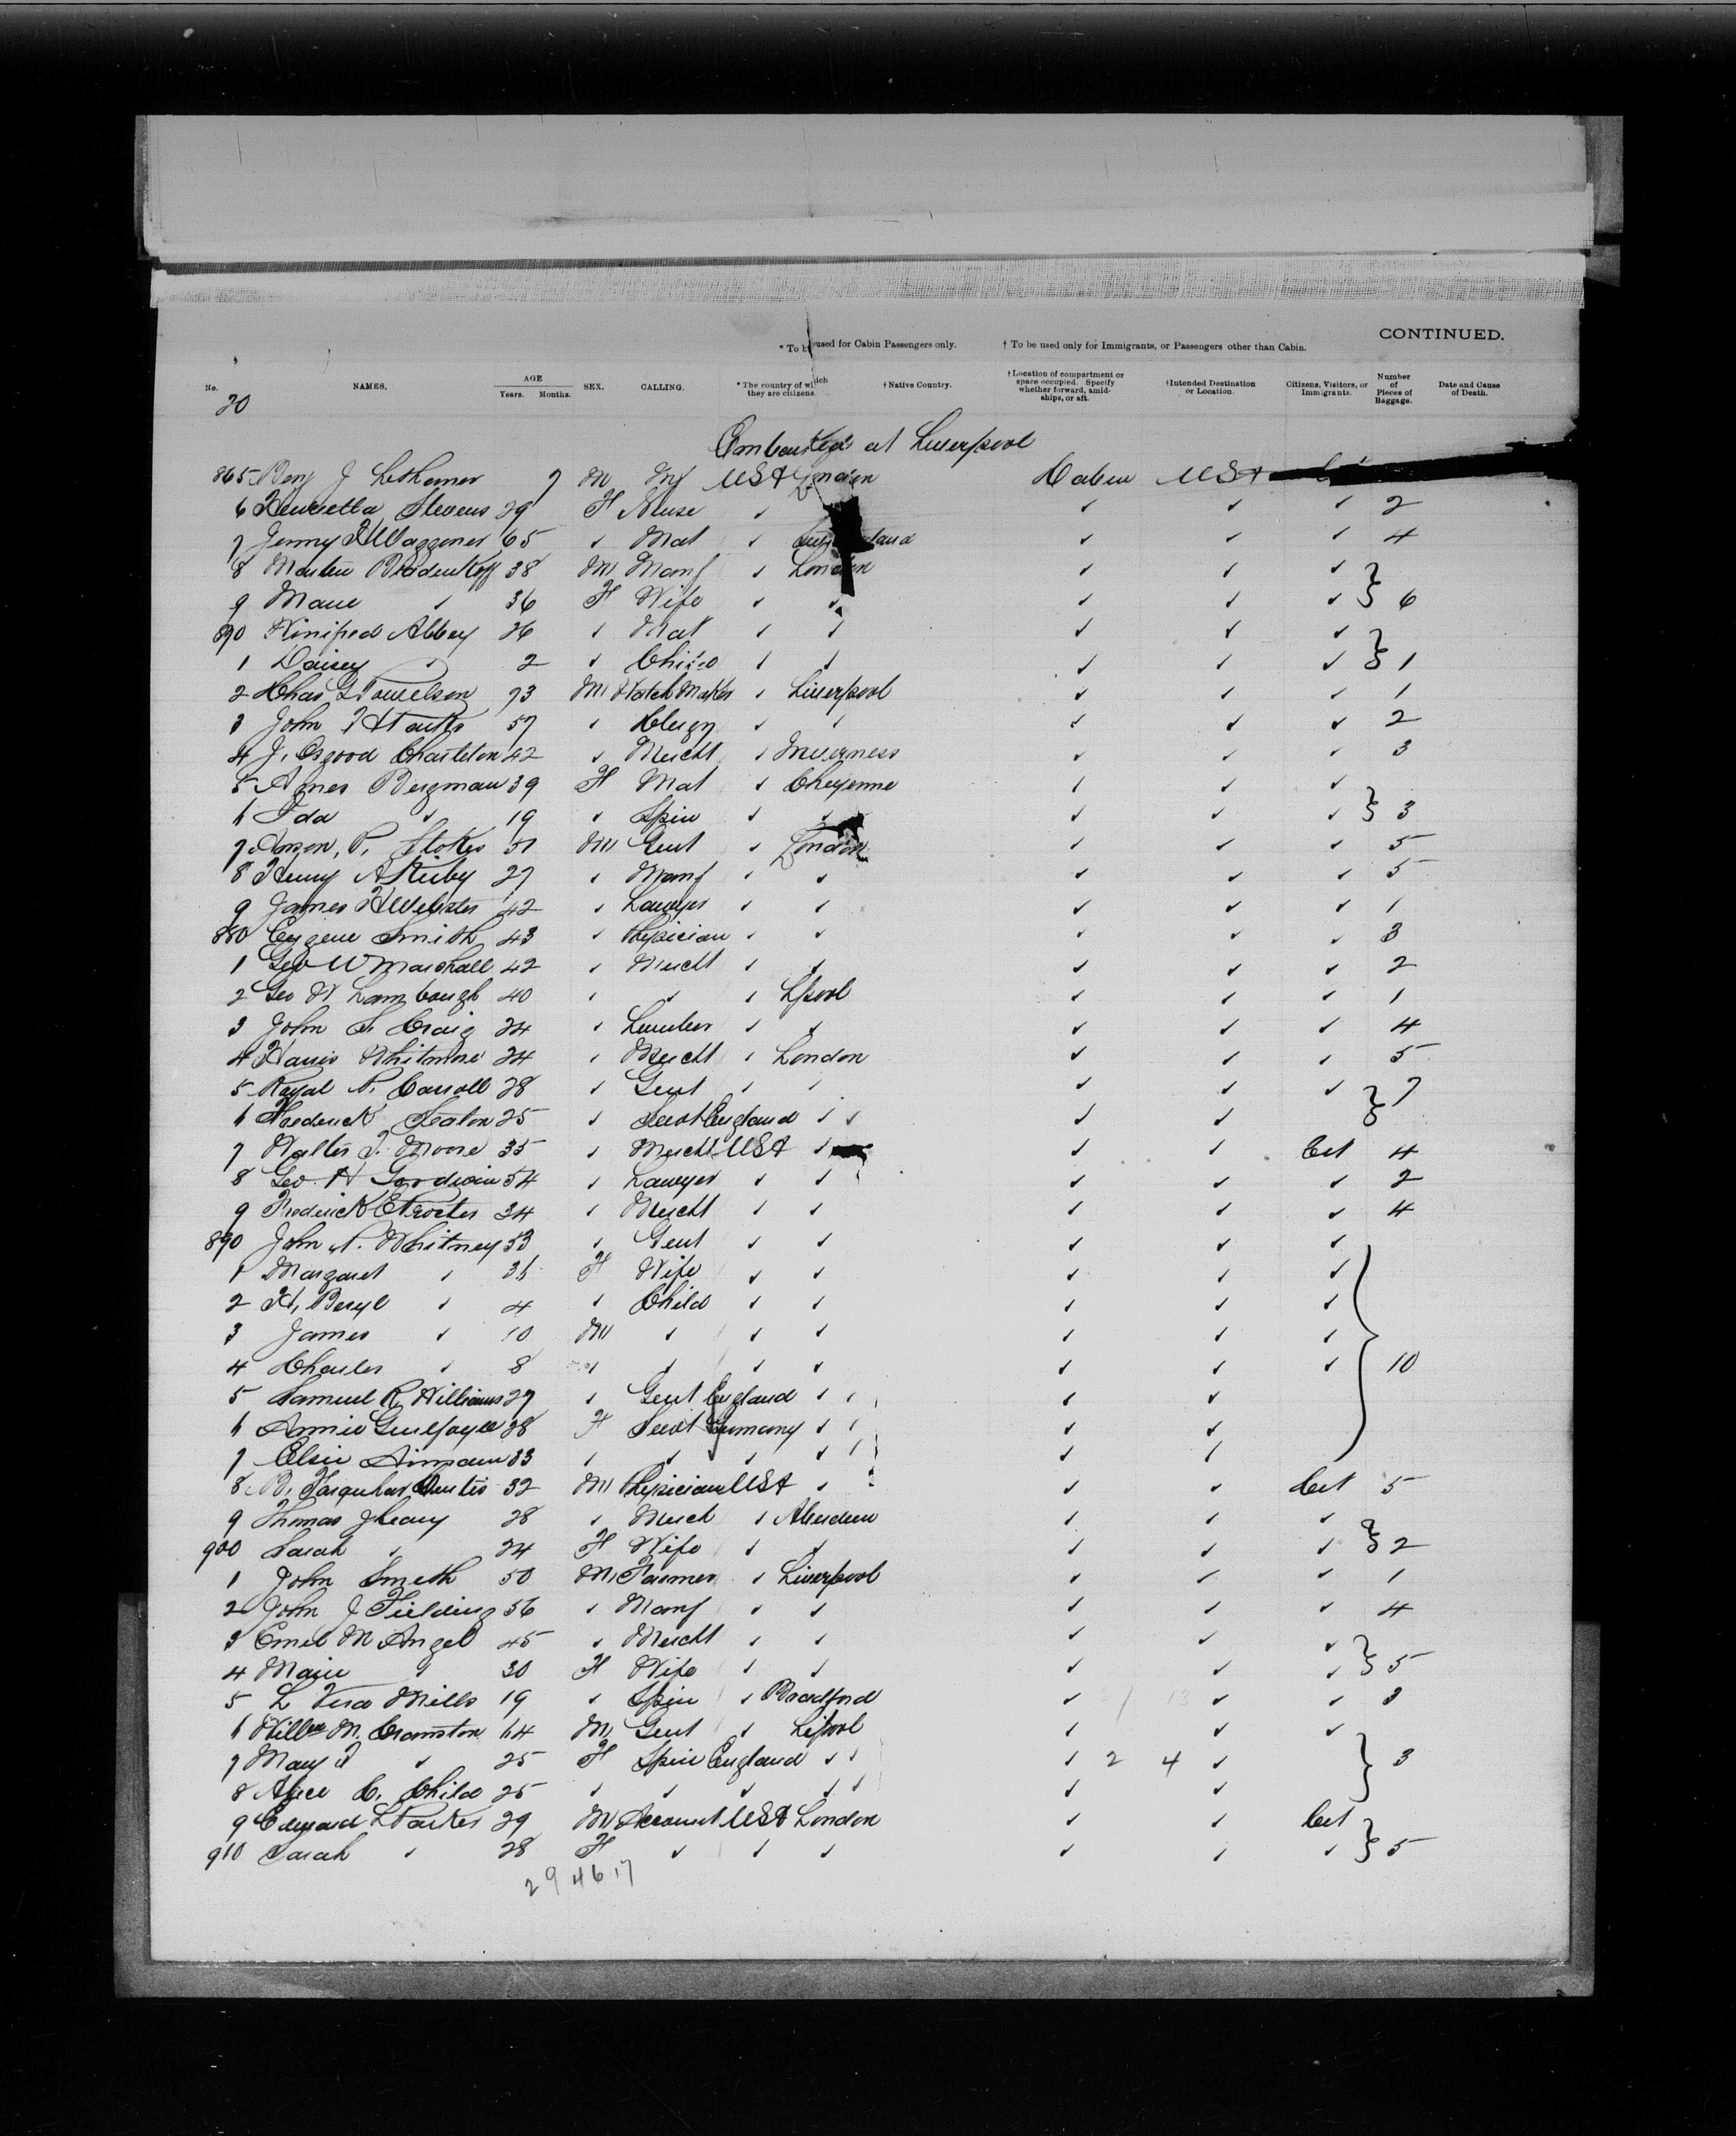 CONTINUED.
* To be used for Cabin Passengers only. † To be used only for Immigrants, or Passengers other than Cabin.
No. NAMES. AGE Years. Months. SEX. CALLING. * The country of which they are citizens. † Native Country. † Location of compartment or space occupied. Specify whether forward, amidships, or aft. † Intended Destination or Location. Citizens, Visitors, or Immigrants. Number of Pieces of Baggage. Date and Cause of Death.
20
Embarked at Liverpool
865 Benj J M USA London Cabin USA
6 Henrietta Stevens 29 F Nurse ✓ ✓ ✓ ✓ 2
7 Jenny H Waggoner 65 ✓ Mat ✓ ✓ ✓ ✓ 4
8 Martin 38 M Manf ✓ London ✓ ✓ ✓ }
9 Marie ✓ 36 F Wife ✓ ✓ ✓ ✓ ✓ } 6
Winifred Abbey 26 ✓ Mat ✓ ✓ ✓ ✓ ✓ }
1 Daisey ✓ 2 ✓ Child ✓ ✓ ✓ ✓ ✓ } 1
2 Chas G 73 M Watch Maker ✓ Liverpool ✓ ✓ ✓ 1
3 John 57 ✓ Clergy ✓ ✓ ✓ ✓ ✓ 2
4 J. Osgood Charleton 42 ✓ Mercht ✓ Inverness ✓ ✓ ✓ 3
5 Agnes Bergman 39 F Mat ✓ Cheyenne ✓ ✓ ✓ }
6 Ida ✓ 19 ✓ Spin ✓ ✓ ✓ ✓ ✓ } 3
7 Anson P. Stokes 51 M Gent ✓ London ✓ ✓ ✓ 5
8 Henry A 27 ✓ Manf ✓ ✓ ✓ ✓ ✓ 5
9 James H Webster 42 ✓ Lawyer ✓ ✓ ✓ ✓ ✓ 1
880 Eugene Smith 43 ✓ Physician ✓ ✓ ✓ ✓ ✓ 3
1 Geo W Marshall 42 ✓ Mercht ✓ ✓ ✓ ✓ ✓ 2
2 Geo W Lambaugh 40 ✓ ✓ ✓ Lpool ✓ ✓ ✓ 1
3 John S. Craig 24 ✓ Lumber ✓ ✓ ✓ ✓ ✓ 4
4 Harris Whitmore 24 ✓ Mercht ✓ London ✓ ✓ ✓ 5
5 Royal P. Carroll 28 ✓ Gent ✓ ✓ ✓ ✓ ✓ } 7
6 Frederick Seaton 25 ✓ Servt England ✓ ✓ ✓ ✓ }
7 Walter T. Moore 35 ✓ Mercht USA ✓ ✓ ✓ Cit 4
8 Geo H Goodwin 54 ✓ Lawyer ✓ ✓ ✓ ✓ ✓ 2
9 Frederick E Procter 34 ✓ Mercht ✓ ✓ ✓ ✓ ✓ 4
890 John N. Whitney 53 ✓ Gent ✓ ✓ ✓ ✓ ✓
1 Margaret ✓ 36 F Wife ✓ ✓ ✓ ✓ ✓
2 H. Beryl ✓ 4 ✓ Child ✓ ✓ ✓ ✓ ✓
3 James ✓ 10 M ✓ ✓ ✓ ✓ ✓ ✓
4 Charles ✓ 8 ✓ ✓ ✓ ✓ ✓ ✓ ✓ } 10
5 Samuel R. Williams 27 ✓ Gent England ✓ ✓ ✓ ✓
6 Annie Guilfoyle 28 F Servt Germany ✓ ✓ ✓ ✓
7 Elsie 33 ✓ ✓ ✓ ✓ ✓ ✓ ✓
8 B. Farquhar Curtis 32 M Physician USA ✓ ✓ ✓ Cit 5
9 Thomas J Leary 28 ✓ Merch ✓ Aberdeen ✓ ✓ ✓ }
900 Sarah ✓ 24 F Wife ✓ ✓ ✓ ✓ ✓ } 2
1 John Smeth 50 M Farmer ✓ Liverpool ✓ ✓ ✓ 1
2 John J Fielding 56 ✓ Manf ✓ ✓ ✓ ✓ ✓ 4
3 Emel M Angel 45 ✓ Mercht ✓ ✓ ✓ ✓ ✓ }
4 Marie ✓ 30 F Wife ✓ ✓ ✓ ✓ ✓ } 5
5 L Vera Mills 19 ✓ Spin ✓ Bradford ✓ 13 ✓ ✓ 3
6 Willm M. Cranston 64 M Gent ✓ Lpool ✓ ✓ ✓
7 Mary ✓ 25 F Spin England ✓ ✓ ✓ 2 4 ✓ } 3
8 Alice C. Child 25 ✓ ✓ ✓ ✓ ✓ ✓ ✓
9 Edward L Parker 29 M Account USA London ✓ ✓ Cit }
910 Sarah ✓ 28 F ✓ ✓ ✓ ✓ ✓ ✓ } 5
29 46 17